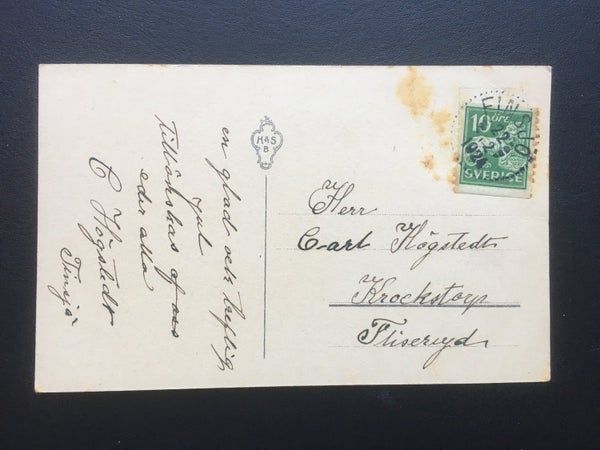 en glad och treflig
jul
Tillönskas af oss
eder alla
C Högstedt
Finsjö
H&S
B
10 ÖRE
SVERIGE
Herr
Carl Högstedt
Krockstorp
Fliseryd